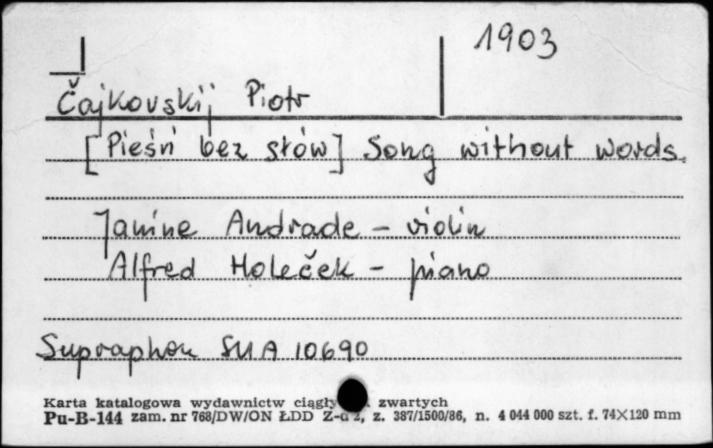 1903
Čajkovskij Piotr
[Pieśń bez słów] Song without words.
Janine Andrade – violin
Alfred Holeček – piano
Supraphon SUA 10690
Karta katalogowa wydawnictw zwartych
Pu-B-144 zam. nr 768/DW/ON ŁDD z. 387/1500/86, n. 4 044 000 szt. f. 74×120 mm